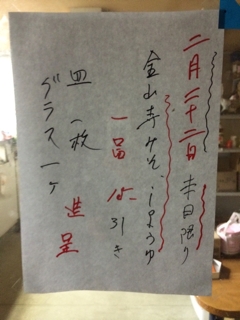 二月二十二日 本日限り
金山寺みそ、しょうゆ
一品 15引き
皿 一枚
グラス 一ケ 進呈